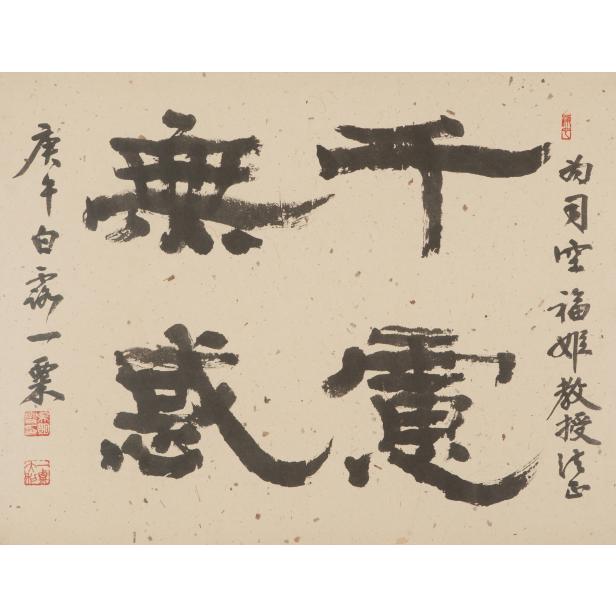 為司空福姬教授法正
千慮
無惑
庚午白露一粟